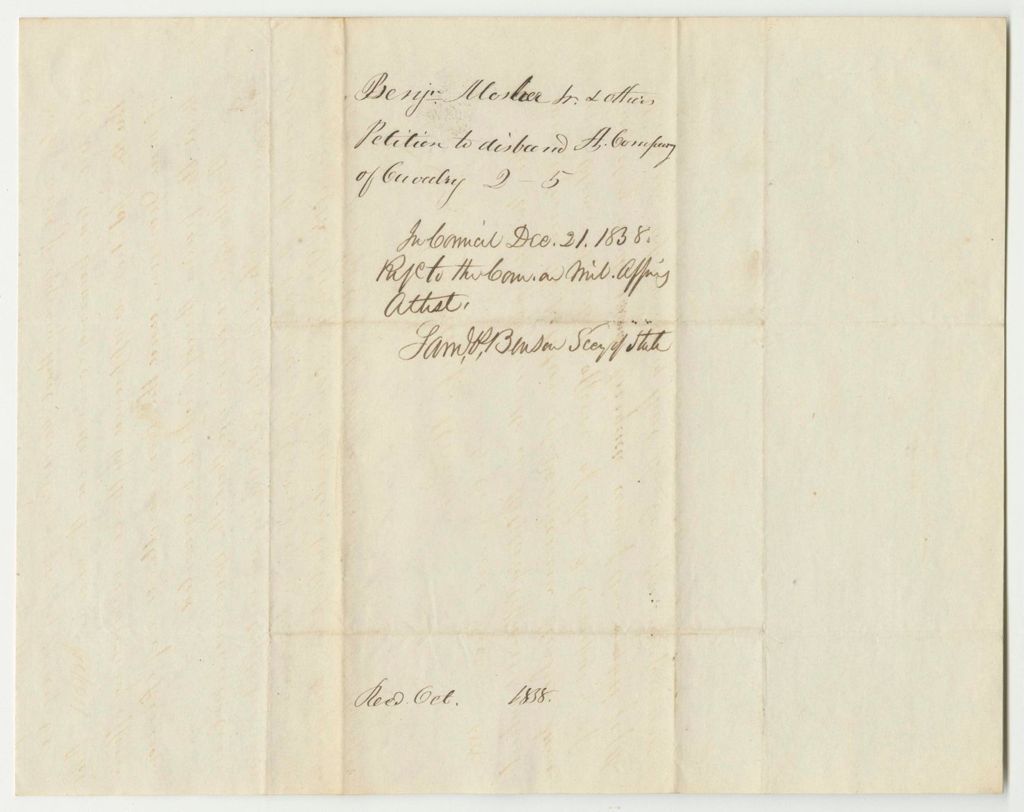 Benjn. Mosher Jr. & others
Petition to disband A. Company
of Cavalry 2 - 5
In Council Dec. 21. 1838.
Refd to the Com. on Mil. Affairs
Attest.
Saml. P. Benson Secy of State
Recd. Oct. 1838.